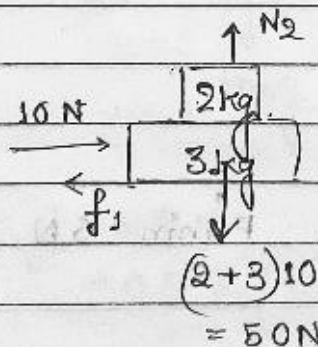 N2
2kg
10 N
3kg
f1
(2+3)10
= 50N